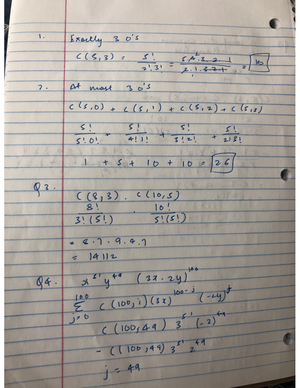 1. Exactly 3 0's
C(5,3) = 5! / 2!3! = 5.4.3.2.1 / 2.1.3.2.1 = 10
2. At most 3 0's
C(5,0) + C(5,1) + C(5,2) + C(5,3)
5! / 5!0! + 5! / 4!1! + 5! / 3!2! + 5! / 2!3!
1 + 5 + 10 + 10 = 26
Q3.
C(8,3) . C(10,5)
8! / 3!(5!) . 10! / 5!(5!)
= 8.7.9.4.7
= 14112
Q4. x^51 y^49 (3x-2y)^100
100 Σ j=0 C(100,j)(3x)^100-j (-2y)^j
C(100,49) 3^51 (-2)^49
- C(100,49) 3^51 2^49
j = 49